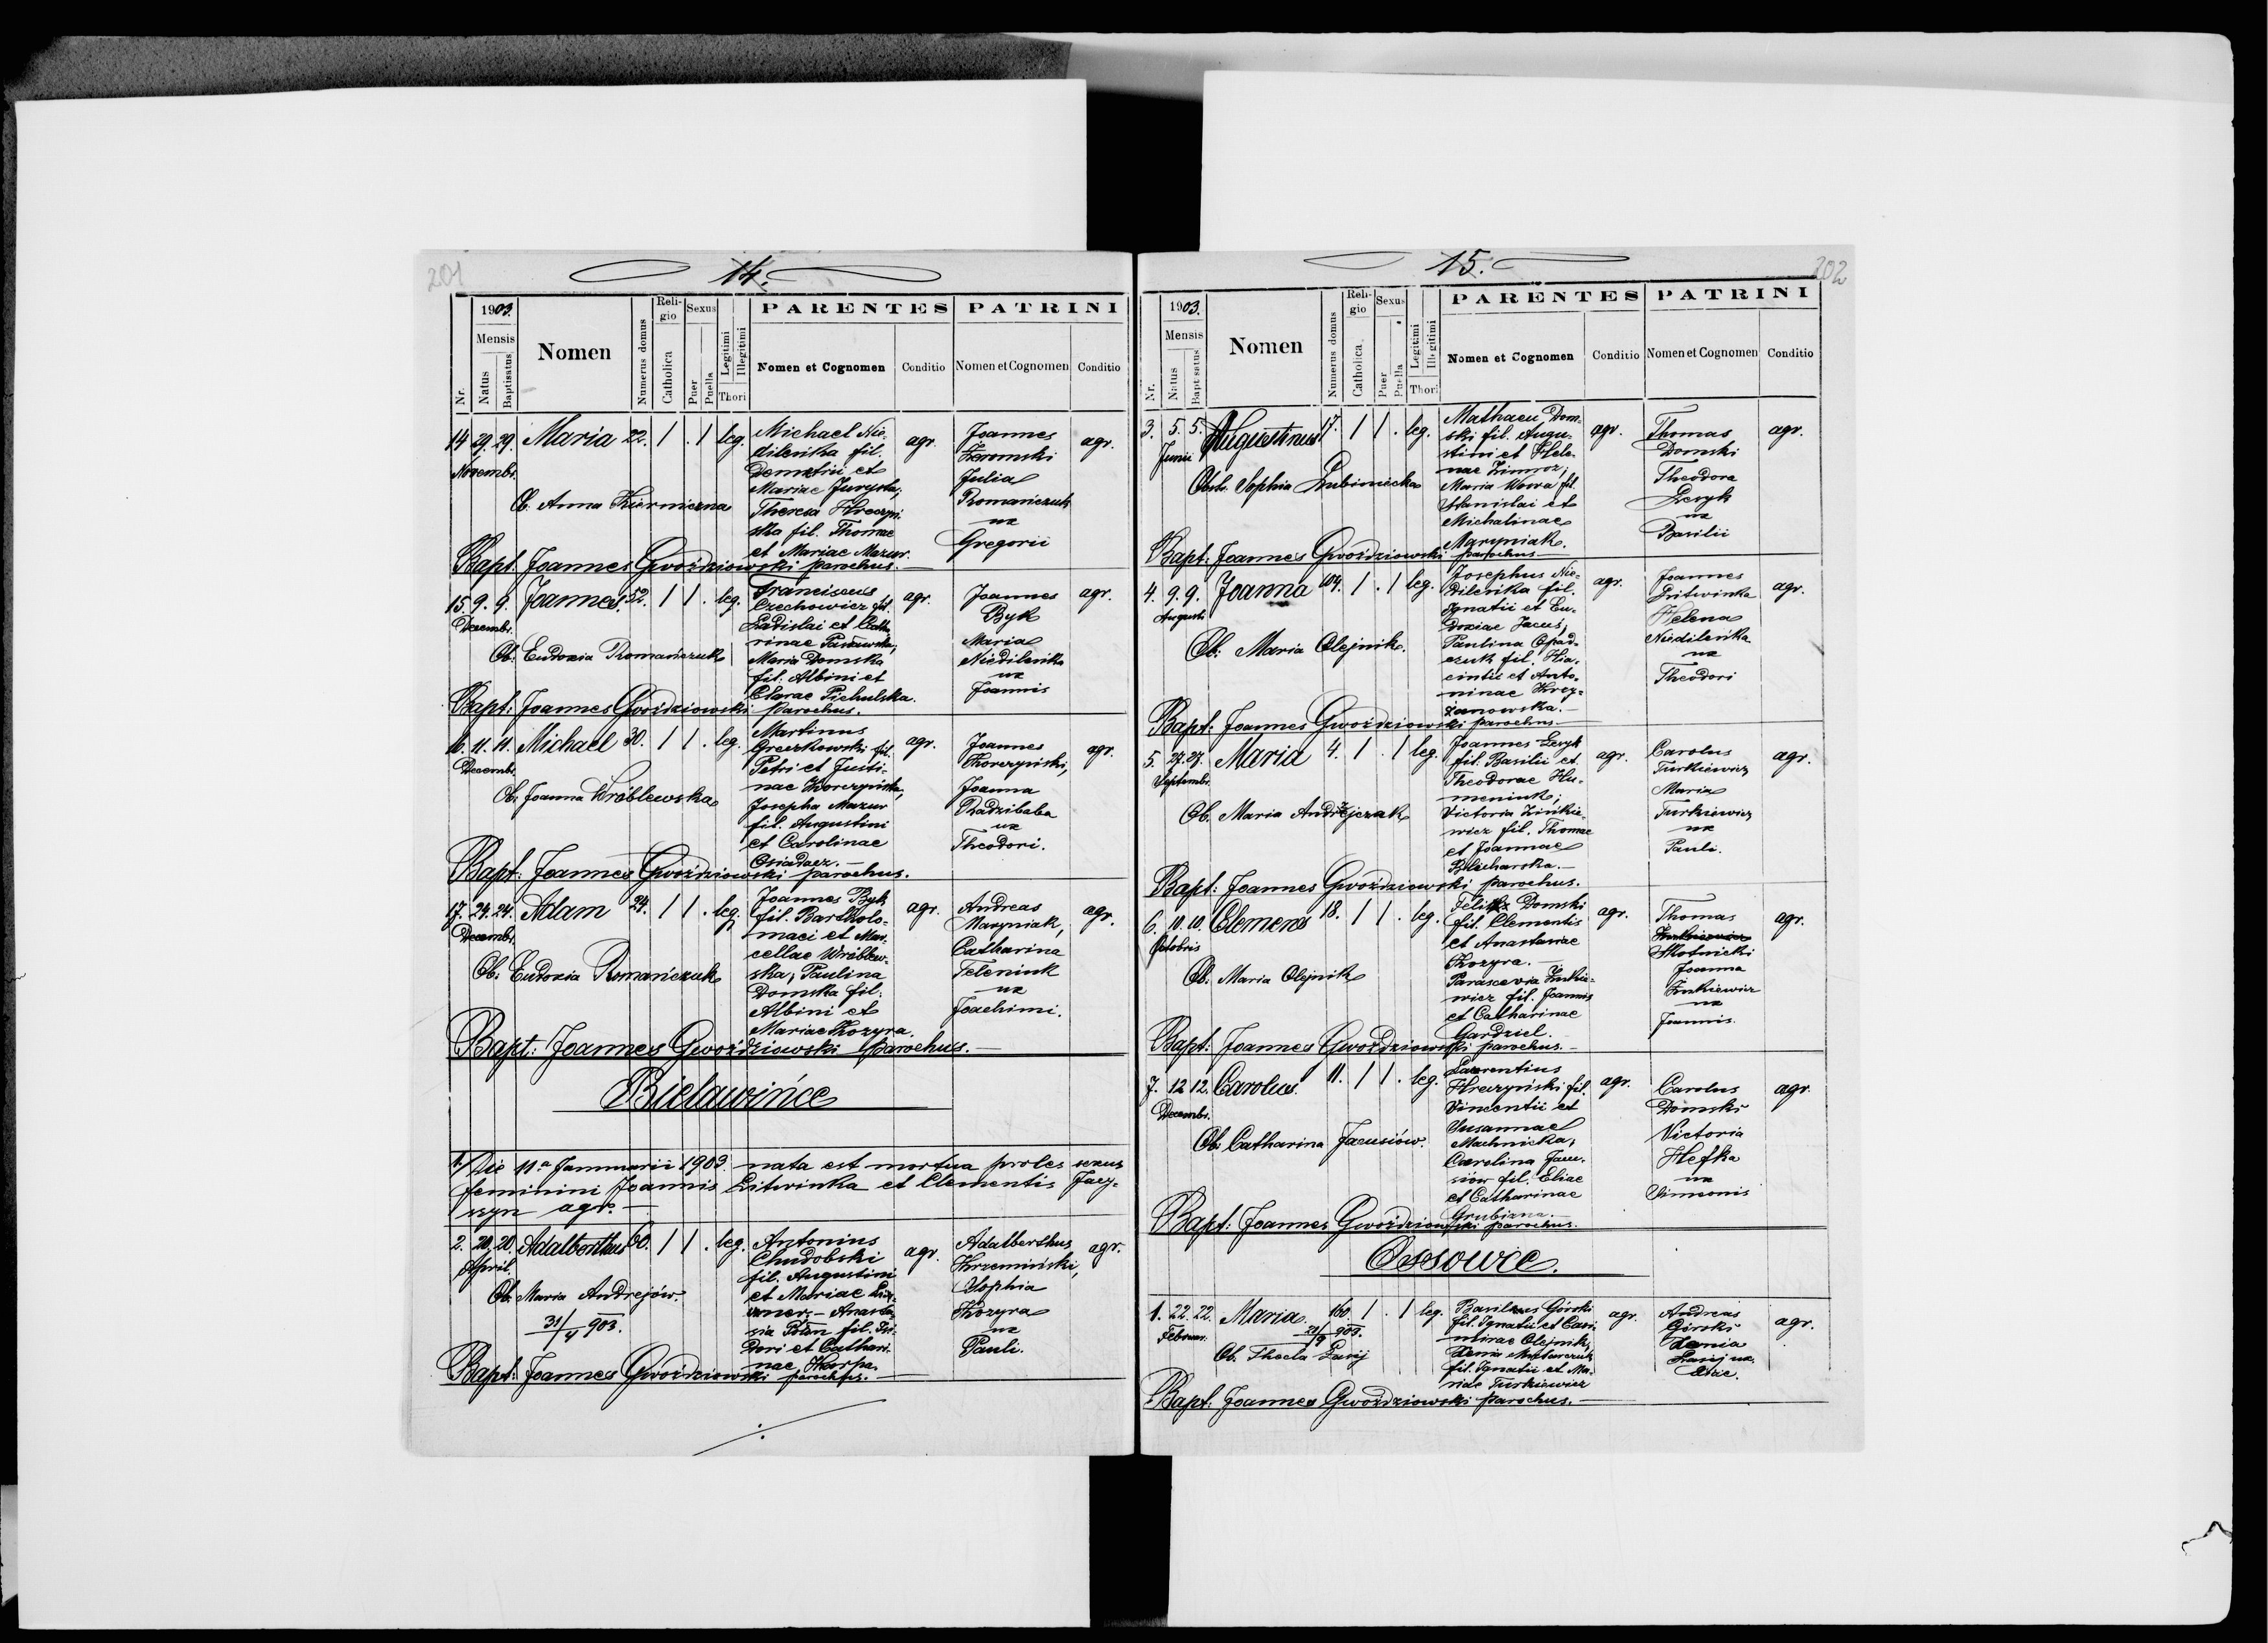 201
14.
1903.
Mensis
Nr.
Natus
Baptisatus
Nomen
Numerus domus
Religio
Catholica
Sexus
Puer
Puella
Legitimi
Illegitimi
Thori
PARENTES
Nomen et Cognomen
Conditio
PATRINI
Nomen et Cognomen
Conditio
14 29. 29. Maria 22. / . / leg.
Novembr.
Ob. Anna Kierniczna
Michael Nie-
dilenka fil.
Demetrii et
Mariae Jurysta,
Theresa Hreczyń-
ska fil. Thomae
et Mariae Mazur.
agr.
Joannes
Julia
Romańczuk
ux
Gregorii
agr.
Bapt. Joannes Gwoździowski parochus.
15. 9. 9. Joannes. 52. / / . leg.
Decembr.
Ob. Eudoxia Romańczuk
Franciscus
Czechowicz fil.
Ladislai et Cath-
rinae
Maria Domska
fil. Albini et
Clarae Pichulska.
agr.
Joannes
Byk
Maria
Niedilenka
ux
Joannis
agr.
Bapt: Joannes Gwoździowski parochus.
16. 11. 11. Michael 30. / / . leg.
Decembr.
Ob. Joanna Wróblewska
Martinus
Greczkowski fil.
Petri et Justi-
nae Korczyńska,
Josepha Mazur
fil. Augustini
et Carolinae
Osiadacz.
agr.
Joannes
Korczyński,
Joanna
Radzibaba
ux
Theodori.
agr.
Bapt: Joannes Gwoździowski parochus.
17. 24. 24. Adam 24. / / . leg.
Decembr.
Ob. Eudoxia Romańczuk
Joannes Byk
fil. Bartholo-
maei et Mar-
cellae Wróblew-
ska, Paulina
Domska fil.
Albini et
Mariae Kozyra.
agr.
Andreas
Maryniak,
Catharina
Teleniuk
ux
Joachimi.
agr.
Bapt: Joannes Gwoździowski parochus.
Bielawińce
1. Die 11a Jannuarii 1903. nata est mortua proles sexus
feminini Joannis Litwinka et Clementis Jacy-
szyn agr.
2. 20. 20. Adalberthus 60. / / . leg.
April.
Ob. Maria Andrejów.
Antonius
Chudobski
fil. Augustini
et Mariae
Anasta-
sia fil. Isi-
dori et Cathari-
nae Karpa.
agr.
Adalberthus
Krzemiński,
Sophia
Kozyra
ux
Pauli.
agr.
Bapt: Joannes Gwoździowski parochus.
202
15.
1903.
Mensis
Nr.
Natus
Baptisatus
Nomen
Numerus domus
Religio
Catholica
Sexus
Puer
Puella
Legitimi
Illegitimi
Thori
PARENTES
Nomen et Cognomen
Conditio
PATRINI
Nomen et Cognomen
Conditio
3. 5. 5. Augustinus 17. / / . leg.
Junii
Obst. Sophia Lubiniecka
Mathaeu Dom-
ski fil. Augu-
stini et Hele-
nae Zimroz,
Maria Wowa fil.
Stanislai et
Michalinae
Maryniak.
agr.
Thomas
Domski
Theodora
Leszyk
ux
Basilii
agr.
Bapt: Joannes Gwoździowski parochus
4. 9. 9. Joanna 104. / . / leg.
Augusti
Ob: Maria Olejnik.
Josephus Nie-
dilenka fil.
Ignatii et Eu-
doxiae Jacuś,
Paulina Opad-
czuk fil. Hia-
cinthi et Anto-
ninae Krzy-
żanowska.
agr.
Joannes
Litwinka
Helena
Niedilenka
ux
Theodori
agr.
Bapt: Joannes Gwoździowski parochus
5. 27. 27. Maria 4. / . / leg.
Septembr.
Ob. Maria Andrejczak
Joannes Leszyk
fil. Basilii et
Theodorae Hu-
meniuk,
Victoria Zinkie-
wicz fil. Thomae
et Joannae
Blicharska.
agr.
Carolus
Turkiewicz
Maria
Turkiewicz
ux
Pauli.
agr.
Bapt: Joannes Gwoździowski parochus.
6. 10. 10. Clemens 18. / / . leg.
Octobris
Ob. Maria Olejnik
Felix Domski
fil. Clementis
et Anastasiae
Kozyra.
Parascevia Zinkie-
wicz fil. Joannis
et Catharinae
Gardziel.
agr.
Thomas
Słotnicki
Joanna
Zinkiewicz
ux
Joannis.
agr.
Bapt: Joannes Gwoździowski parochus.
7. 12. 12. Carolus. 11. / / . leg.
Decembr.
Ob. Catharina Jacusiów.
Laurentius
Hreczyński fil.
Vincentii et
Susannae
Machnicka,
Carolina Jacu-
siów fil. Eliae
et Catharinae
Grubizna.
agr.
Carolus
Domski
Victoria
Hefka
ux
Simeonis
agr.
Bapt: Joannes Gwoździowski parochus.
Ossowce.
1. 22. 22. Maria. 160. / . / leg.
Februar.
Ob. Thecla Łasij
Basilius Górski
fil. Ignatii et Casi-
mirae Olejnik,
Xenia
fil. Ignatii et Ma-
riae Turkiewicz
agr.
Andreas
Górski
Xenia
Łasij ux.
Eliae.
agr.
Bapt: Joannes Gwoździowski parochus.